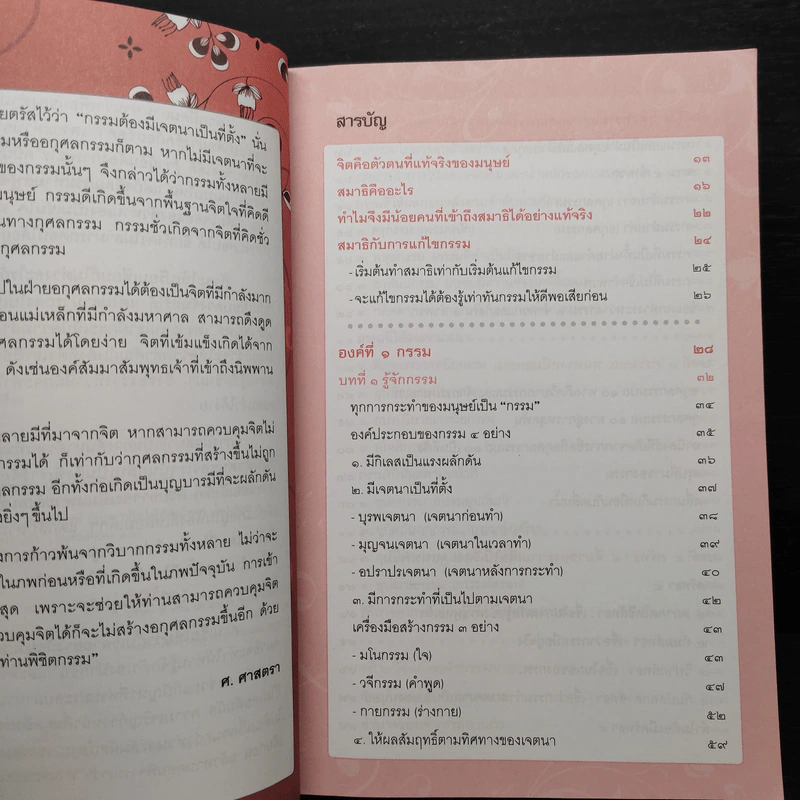 ยตรัสไว้ว่า “กรรมต้องมีเจตนาเป็นที่ตั้ง” นั่น
มหรืออกุศลกรรมก็ตาม หากไม่มีเจตนาที่จะ
ของกรรมนั้นๆ จึงกล่าวได้ว่ากรรมทั้งหลายมี
มนุษย์ กรรมดีเกิดขึ้นจากพื้นฐานจิตใจที่คิดดี
นทางกุศลกรรม กรรมชั่วเกิดจากจิตที่คิดชั่ว
กุศลกรรม
ปในฝ่ายอกุศลกรรมได้ต้องเป็นจิตที่มีกำลังมาก
อนแม่เหล็กที่มีกำลังมหาศาล สามารถดึงดูด
ศลกรรมได้โดยง่าย จิตที่เข้มแข็งเกิดได้จาก
ดังเช่นองค์สัมมาสัมพุทธเจ้าที่เข้าถึงนิพพาน
ลายมีที่มาจากจิต หากสามารถควบคุมจิตไม่
กรรมได้ ก็เท่ากับว่ากุศลกรรมที่สร้างขึ้นไม่ถูก
ลกรรม อีกทั้งก่อเกิดเป็นบุญบารมีที่จะผลักดัน
งยิ่งๆ ขึ้นไป
งการก้าวพ้นจากวิบากกรรมทั้งหลาย ไม่ว่าจะ
ในภพก่อนหรือที่เกิดขึ้นในภพปัจจุบัน การเข้า
สุด เพราะจะช่วยให้ท่านสามารถควบคุมจิต
วบคุมจิตได้ก็จะไม่สร้างอกุศลกรรมขึ้นอีก ด้วย
ท่านพิชิตกรรม”
ศ. ศาสตรา
สารบัญ
จิตคือตัวตนที่แท้จริงของมนุษย์ ๑๓
สมาธิคืออะไร ๑๖
ทำไมจึงมีน้อยคนที่เข้าถึงสมาธิได้อย่างแท้จริง ๒๒
สมาธิกับการแก้ไขกรรม ๒๔
- เริ่มต้นทำสมาธิเท่ากับเริ่มต้นแก้ไขกรรม ๒๕
- จะแก้ไขกรรมได้ต้องรู้เท่าทันกรรมให้ดีพอเสียก่อน ๒๖
องค์ที่ ๑ กรรม ๒๘
บทที่ ๑ รู้จักกรรม ๓๒
ทุกการกระทำของมนุษย์เป็น “กรรม” ๓๔
องค์ประกอบของกรรม ๔ อย่าง ๓๕
๑. มีกิเลสเป็นแรงผลักดัน ๓๖
๒. มีเจตนาเป็นที่ตั้ง ๓๗
- บุรพเจตนา (เจตนาก่อนทำ) ๓๘
- มุญจนเจตนา (เจตนาในเวลาทำ) ๓๙
- อปราปรเจตนา (เจตนาหลังการกระทำ) ๔๐
๓. มีการกระทำที่เป็นไปตามเจตนา ๔๒
เครื่องมือสร้างกรรม ๓ อย่าง ๔๓
- มโนกรรม (ใจ) ๔๓
- วจีกรรม (คำพูด) ๔๗
- กายกรรม (ร่างกาย) ๕๒
๔. ให้ผลสัมฤทธิ์ตามทิศทางของเจตนา ๕๙